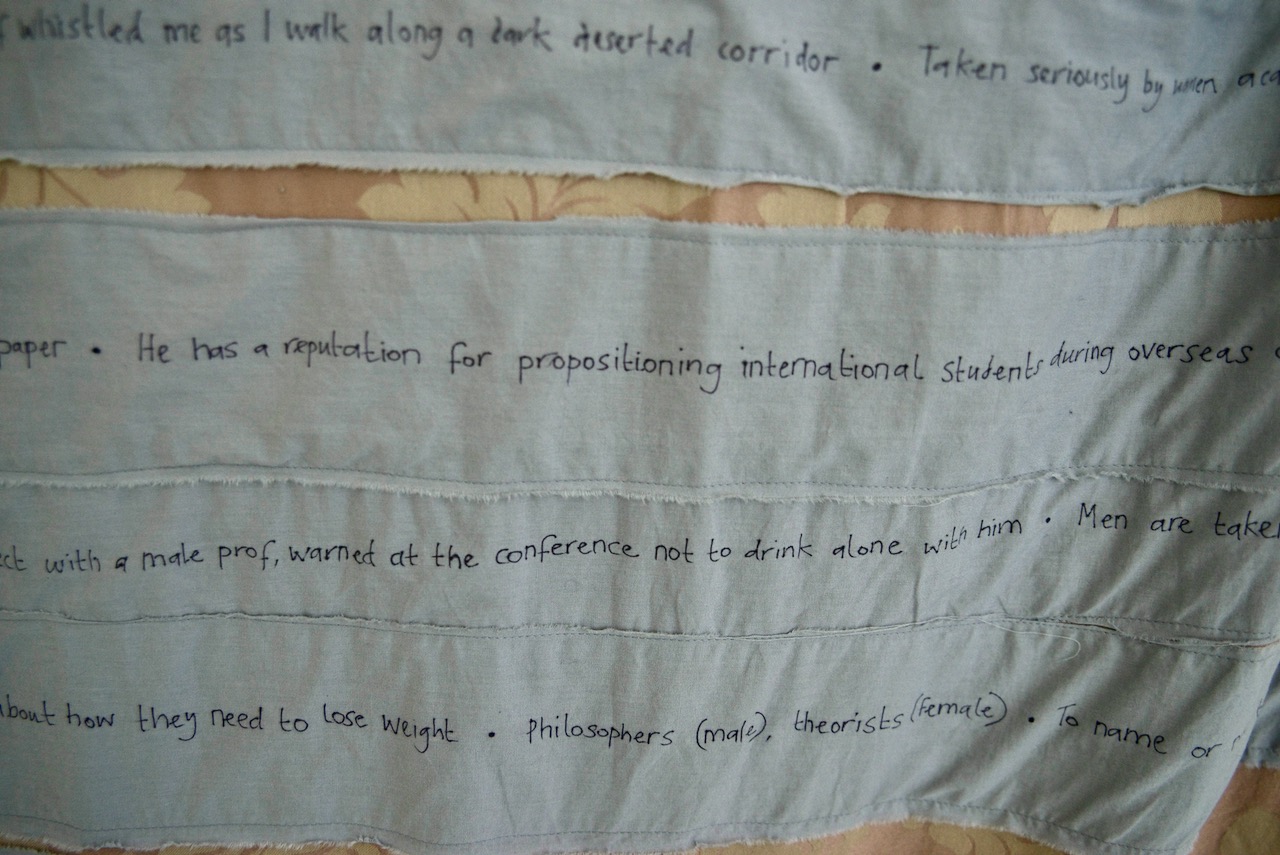 whistled me as I walk along a dark deserted corridor • Taken seriously by women
paper • He has a reputation for propositioning international students during overseas
with a male prof, warned at the conference not to drink alone with him • Men are taken
about how they need to lose weight • Philosophers (male), theorists (female) • To name or